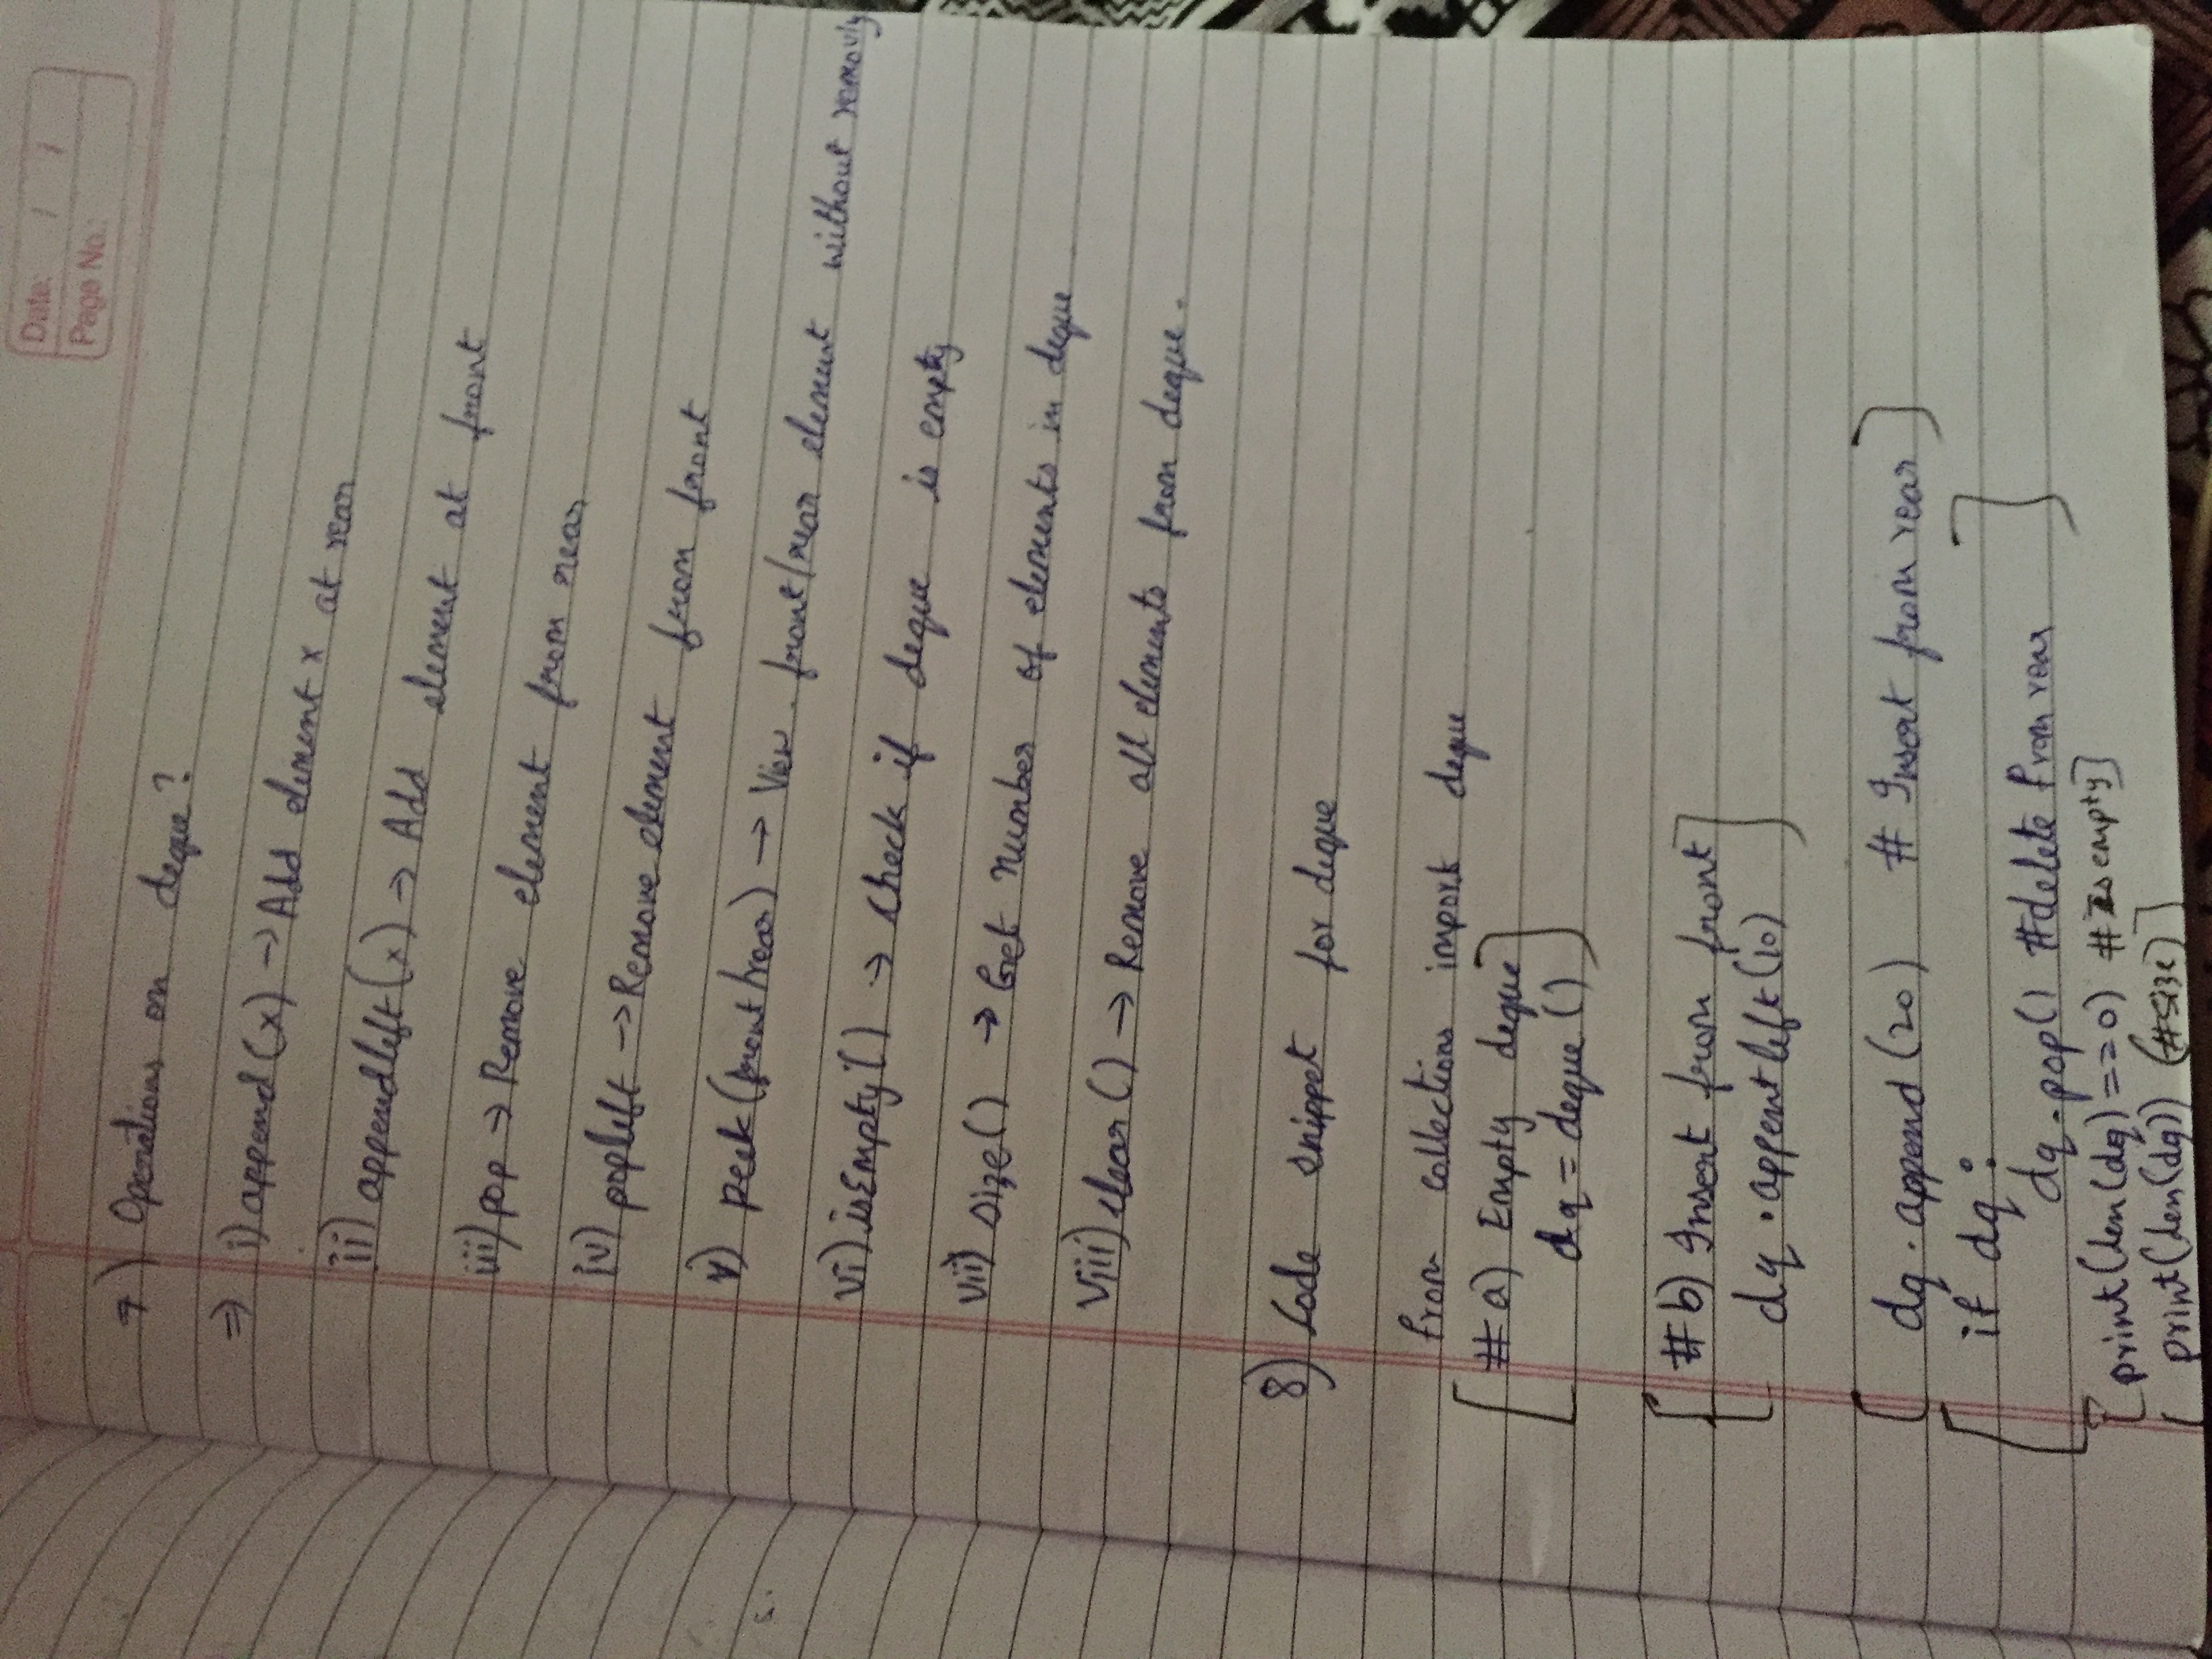 Date: / /
Page No.:
7) Operations on deque?
⇒ i) append (x) → Add element x at rear
ii) appendleft (x) → Add element at front
iii) pop → Remove element from rear
iv) popleft → Remove element from front
v) peek (front/rear) → View front/rear element without removing
vi) isEmpty () → Check if deque is empty
vii) size () → Get number of elements in deque
viii) clear () → Remove all elements from deque.
8) Code snippet for deque
from collections import deque
[ # a) Empty deque
dq = deque () ]
[ # b) Insert from front
dq . appentleft (10) ]
[ dq . append (20) # Insert from rear ]
[ if dq :
dq . pop() # delete from rear ]
[ print (len (dq) == 0) # Is empty ]
[ print (len (dq)) (# size) ]